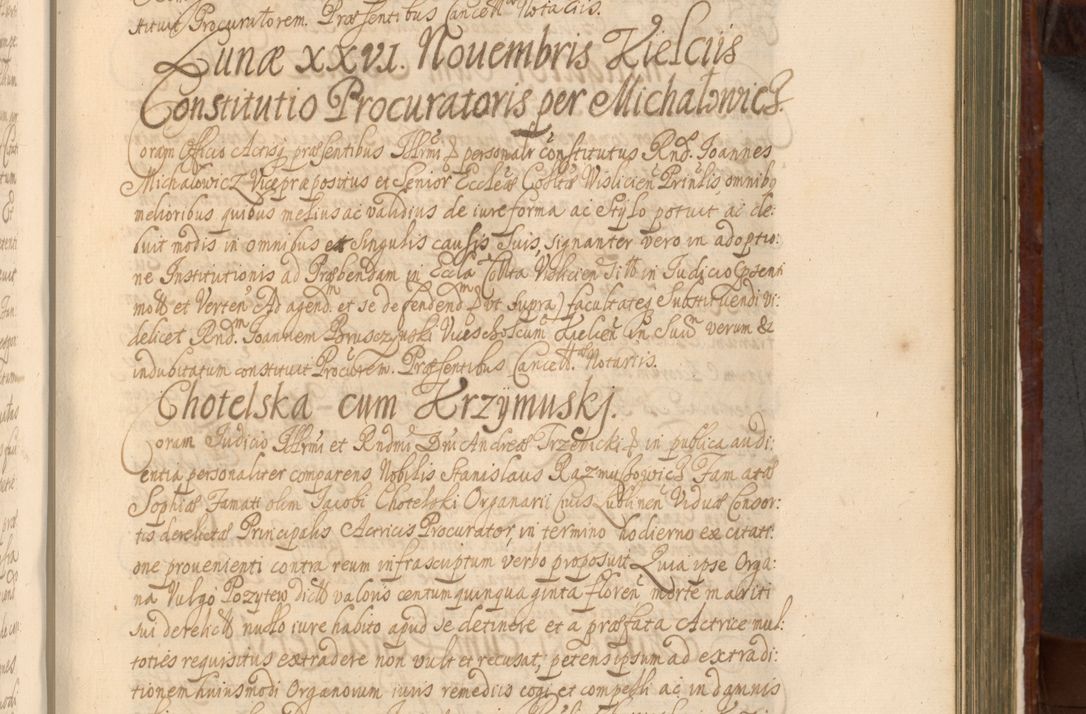 stituit Procuratorem. Præsentibus Cancell. Notariis.
Lunæ XXVI. Nouembris Kielciis
Constitutio Procuratoris per Michałowicz.
Coram Officio Actisq præsentibus Illrmi & personalr constitutus Rnd. Joannes
Michałowicz Vicepræpositus et Senior Eccleæ Collæ Vislicien Prinlis omnibq
melioribus quibus melius ac validius de iure forma ac stylo potuit ac de:
buit modis in omnibus et singulis causis suis, signanter vero in adoptio:
ne Institutionis ad Præbendam in Eccla Collta Vislicien Titt in Judicio
mott et Verten Ad agend. et se defendend & ut supra) facultateq substituendi vi:
delicet Rnd. Joannem Bruszczynski Kielcen in suu verum &
indubitatum constituit Procurem. Præsentibus Cancell. Notariis.
Chotelska cum Krzymuskj.
Coram Judicio Illrmi et Rndmi Dni Andreæ Trzebicki & in publica audi:
entia personaliter comparens Nobilis Stanislaus Razmusowicz Famatæ
Sophiæ Famati olim Jacobi Chotelski Organarii Civis Lublinen Viduæ Consor:
tis derelictæ Principalis Actricis Procurator, in termino hodierno ex citati:
one provenienti contra reum infrascriptum verbo proposuit Quia ipse Orga:
na Vulgo Pozytew dictt valoris centum quinquaginta floren morte mariti
sui derelictt nullo iure habito apud se detinere et a præfata Actrice mul:
toties requisitus extradere non vult et recusat, petens ipsum ad extradi:
tionem huiusmodi Organorum iuris remediis cogi et compelli ac in damnis